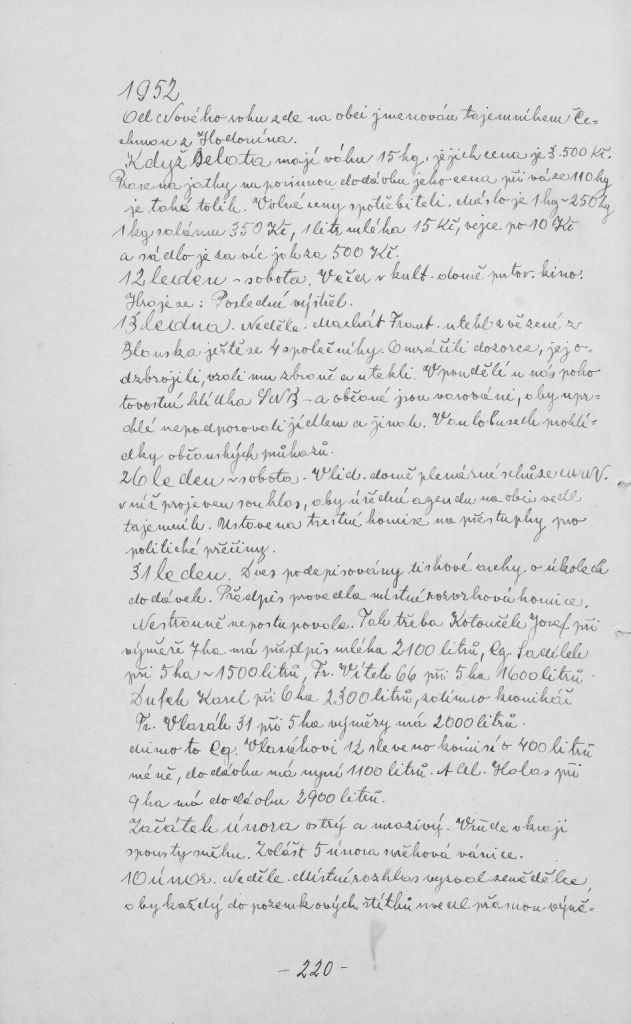 1952
Od Nového roku zde na obci jmenován tajemníkem Če-
chman z Hodonína.
Když selata mají váhu 15 kg. jejich cena je 3.500 Kč.
Prase na jatky na povinnou dodávku jeho cena při váze 110 kg
je také tolik. Volné ceny spotřebiteli. Máslo je 1 kg - 250 kg
1 kg salámu 350 Kč, 1 litr mléka 15 Kč, vejce po 10 Kč
a sádlo je za víc jak za 500 Kč.
12 leden - sobota. Večer v kult. domě putov. kino.
Hraje se: Poslední výstřel.
13 ledna. Neděle. Machát Frant. utekl z vězení z
Blanska ještě se 4 společníky. Omráčili dozorce, jej o-
dzbrojili, vzali mu zbraně a utekli. V pondělí u nás poho-
tovostní hlídka SNB - a občané jsou varováni, aby upr-
chlé nepodporovali jídlem a jinak. V autobusech prohlí-
dky občanských průkazů.
26 leden - sobota. V lid. domě plenární schůze MNV.
v níž projeven souhlas, aby úřední agendu na obci vedl
tajemník. Ustavena trestní komise na přestupky pro
politické příčiny.
31 leden. Dnes podepisovány tiskové archy o úkolech
dodávek. Předpis provedla místní rozvrhová komise.
Nestranně nepostupovala. Tak třeba Kotouček Josef při
výměře 7 ha má předpis mléka 2100 litrů, Cyr. Sadílek
při 5 ha - 1500 litrů, Fr. Vítek 66 při 5 ha 1600 litrů.
Dufek Karel při 6 ha 2300 litrů, zatímco kronikář
Fr. Vlasák 31 při 5 ha výměry má 2000 litrů.
Mimo to Cyr. Vlasákovi 12 sleveno komisí o 400 litrů
méně, dodávku má nyní 1100 litrů. A Al. Holas při
9 ha má dodávku 2900 litrů.
Začátek února ostrý a mrazivý. Všude v kraji
spousty sněhu. Zvlášť 5 února sněhová vánice.
10 únor. Neděle. Místní rozhlas vyzval zemědělce,
aby každý do pozemkových štítků uvedl přesnou výmě-
- 220 -